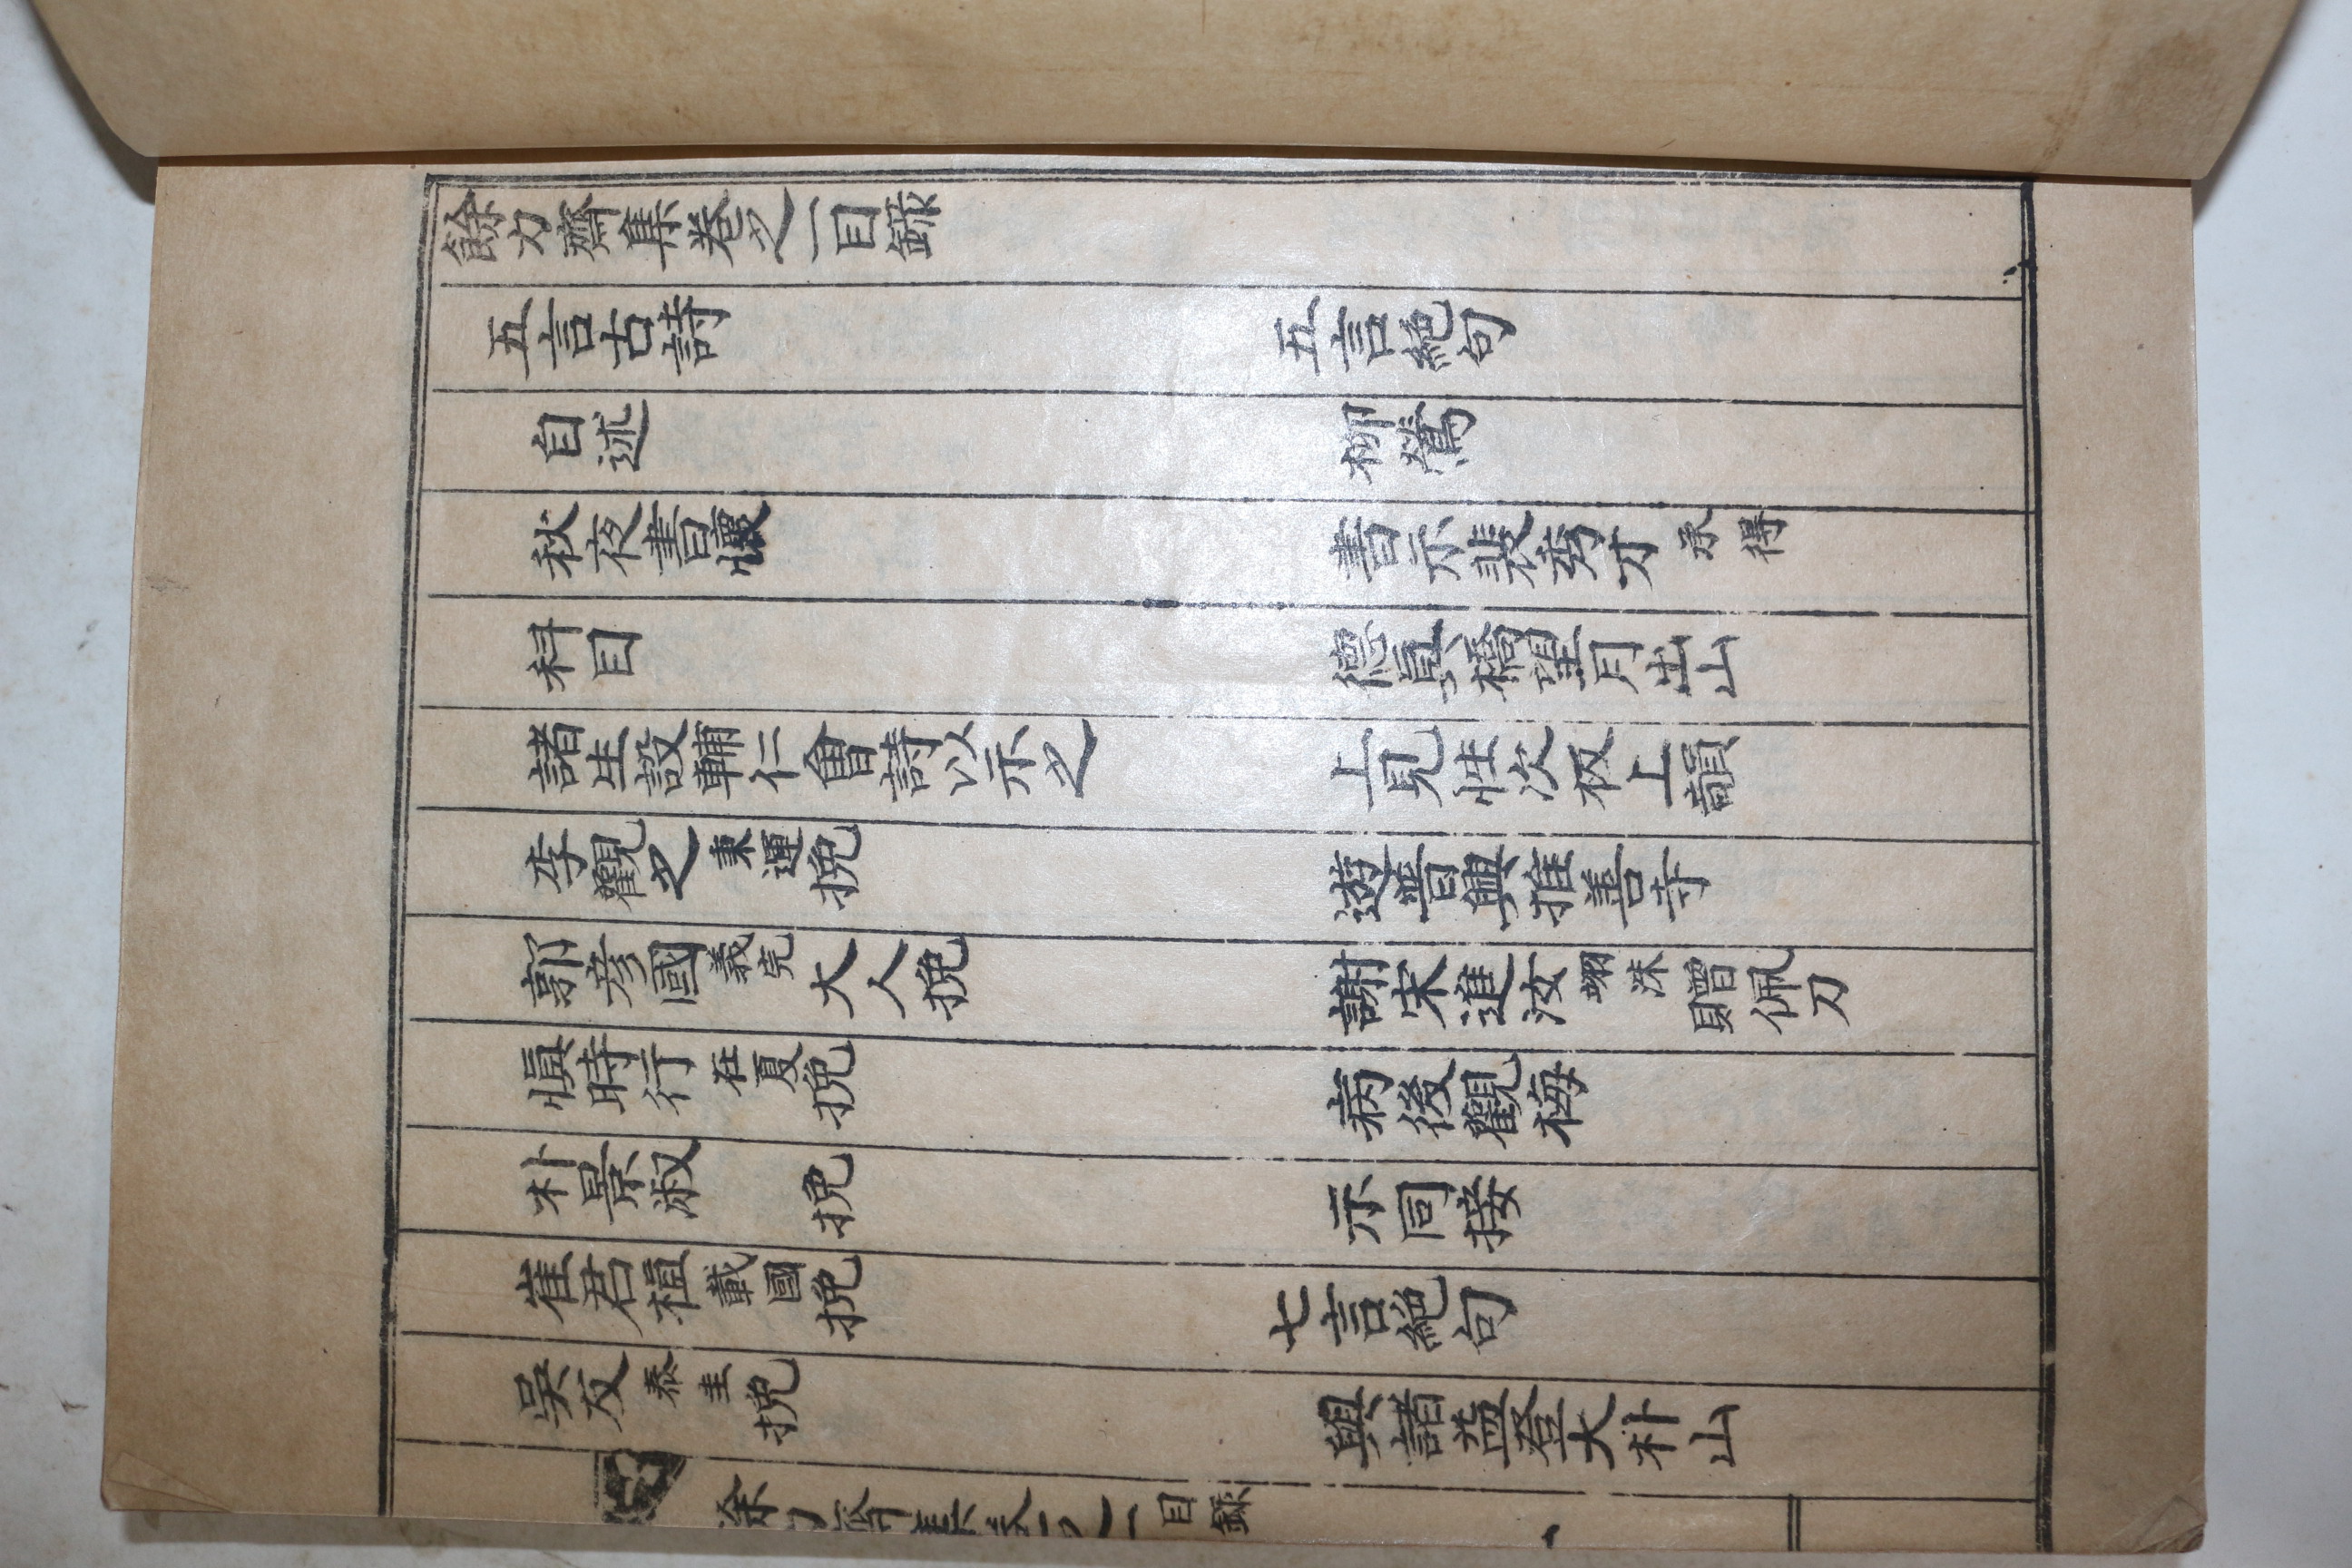 餘力齋集卷之一目錄
五言古詩
自述
秋夜書懷
科目
諸生設輔仁會詩以示之
李觀之秉運挽
郭彦國義完大人挽
愼時行在夏挽
朴景淑挽
崔君植載國挽
吳友泰圭挽
五言絶句
柳鶯
書示裴秀才承得
德眞橋望月出山
上見性次板上韻
遊普興推善寺
謝宋進汝翊洙贈佩刀
病後觀梅
示同接
七言絶句
與諸益登大朴山
餘力齋集卷之一目錄